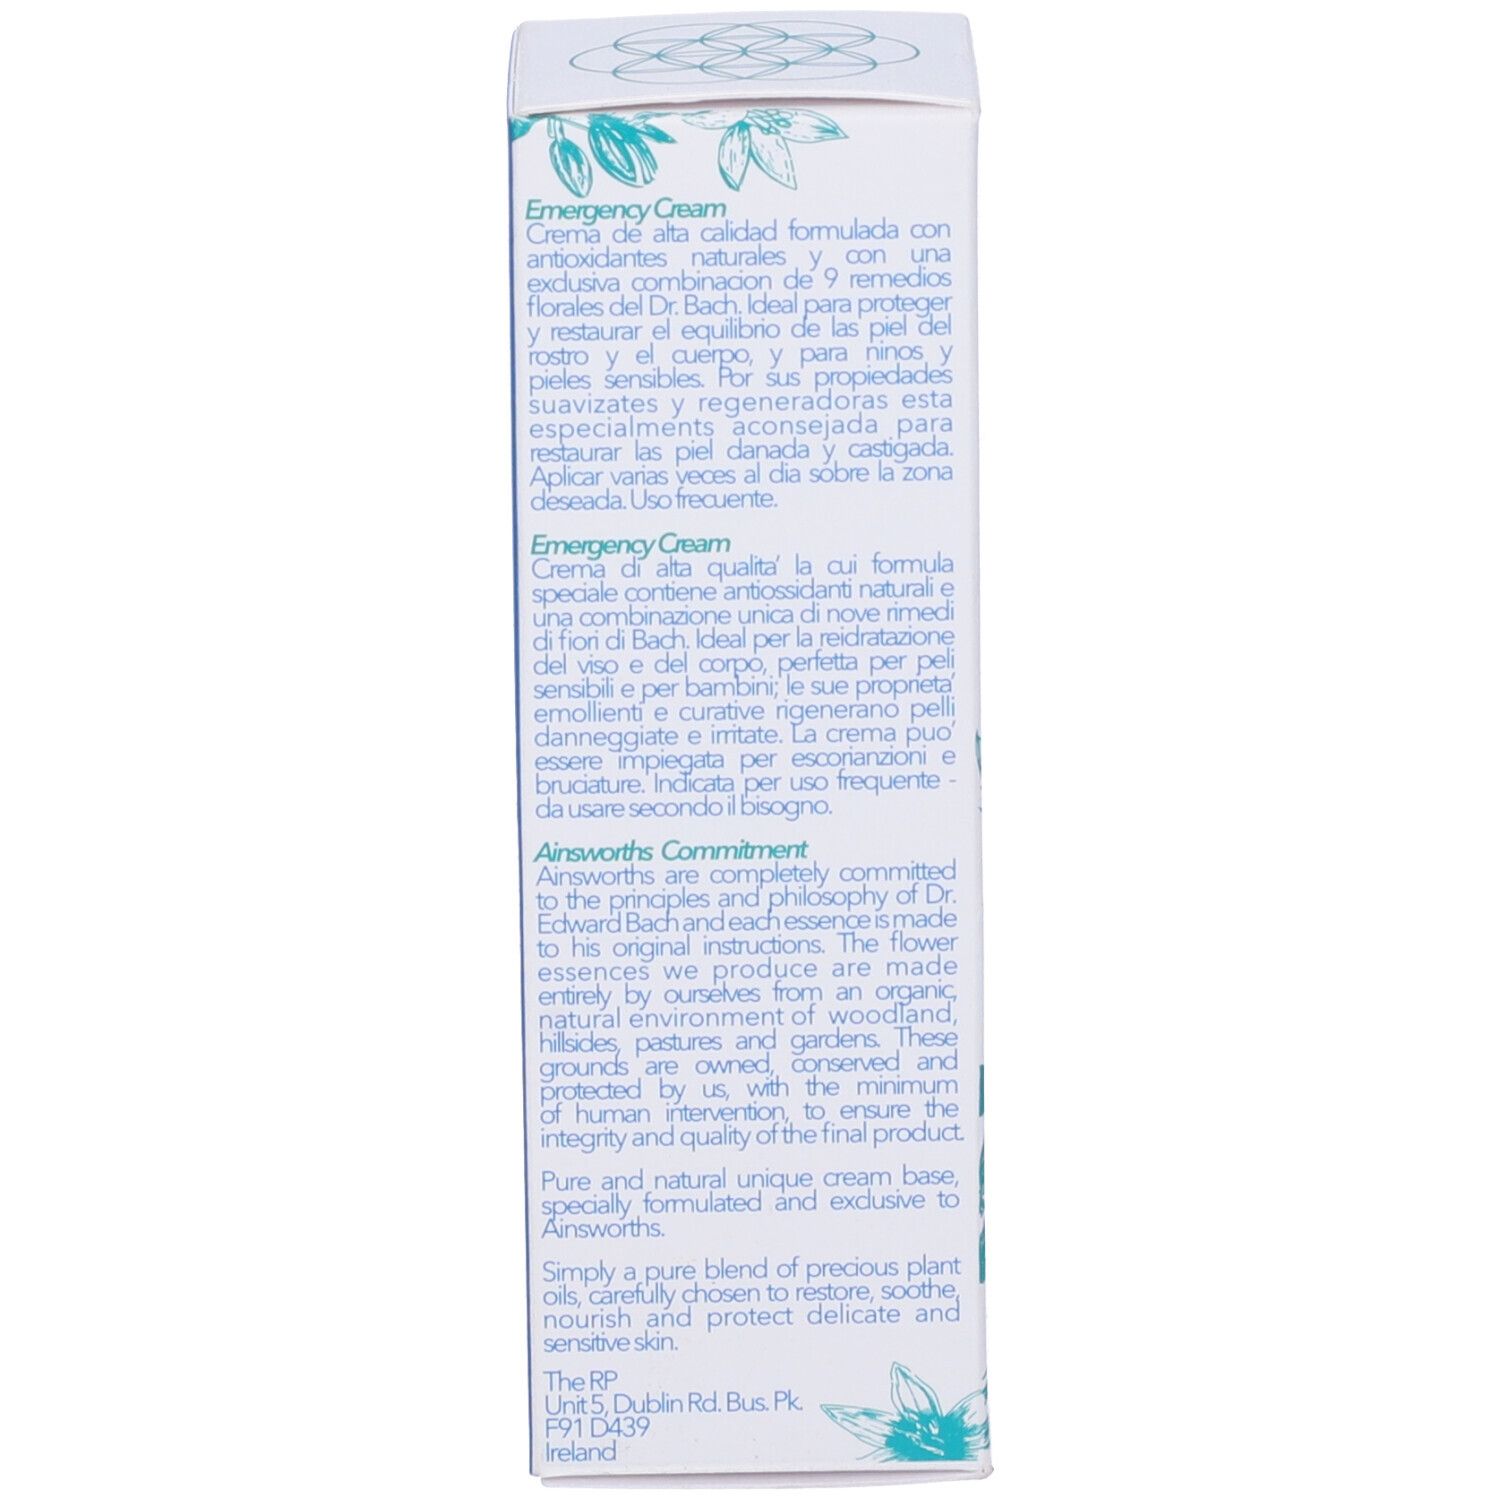 Emergency Cream
Crema de alta calidad formulada con
antioxidantes naturales y con una
exclusiva combinacion de 9 remedios
florales del Dr. Bach. Ideal para proteger
y restaurar el equilibrio de las piel del
rostro y el cuerpo, y para ninos y
pieles sensibles. Por sus propiedades
suavizates y regeneradoras esta
especialments aconsejada para
restaurar las piel danada y castigada.
Aplicar varias veces al dia sobre la zona
deseada. Uso frecuente.
Emergency Cream
Crema di alta qualita' la cui formula
speciale contiene antiossidanti naturali e
una combinazione unica di nove rimedi
di fiori di Bach. Ideal per la reidratazione
del viso e del corpo, perfetta per peli
sensibili e per bambini; le sue proprieta'
emollienti e curative rigenerano pelli
danneggiate e irritate. La crema puo'
essere impiegata per escorianzioni e
bruciature. Indicata per uso frequente -
da usare secondo il bisogno.
Ainsworths Commitment
Ainsworths are completely committed
to the principles and philosophy of Dr.
Edward Bach and each essence is made
to his original instructions. The flower
essences we produce are made
entirely by ourselves from an organic,
natural environment of woodland,
hillsides, pastures and gardens. These
grounds are owned, conserved and
protected by us, with the minimum
of human intervention, to ensure the
integrity and quality of the final product.
Pure and natural unique cream base,
specially formulated and exclusive to
Ainsworths.
Simply a pure blend of precious plant
oils, carefully chosen to restore, soothe,
nourish and protect delicate and
sensitive skin.
The RP
Unit 5, Dublin Rd. Bus. Pk.
F91 D439
Ireland